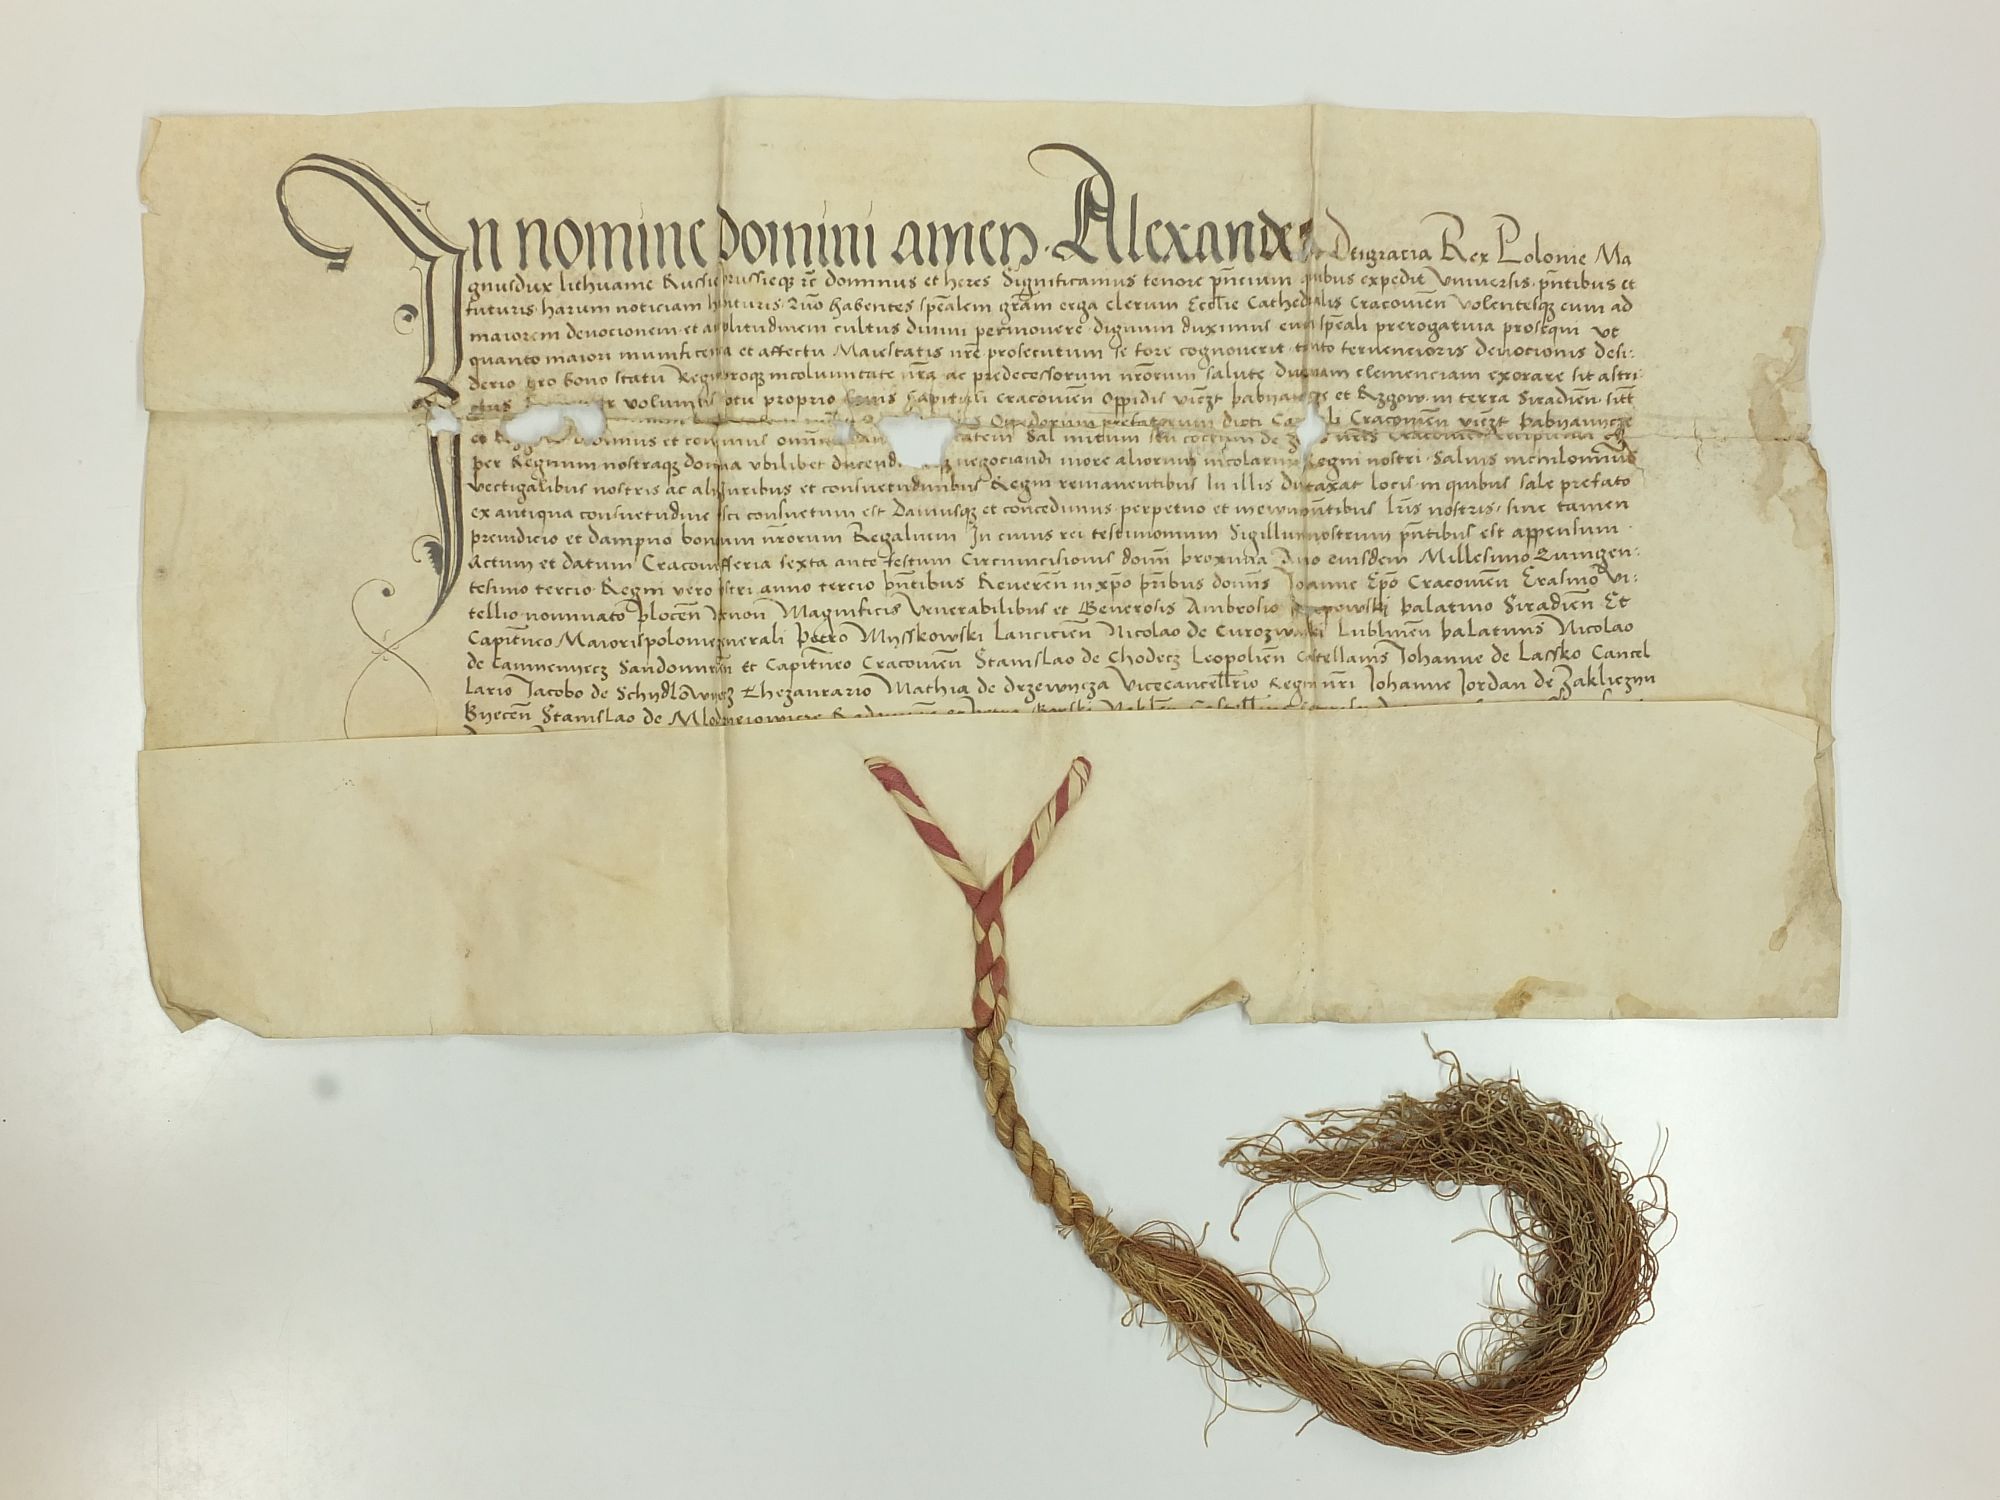 In nomine domini amen. Alexander Deigracia Rex Polonie Ma
gnusdux lithuanie Russie prussieqz rc̄ dominus et heres Significamus tenore pn̄cium quibus expedit Vniversis pn̄tibus et
futuris harum noticiam habituris Quō habentes spēalem grām erga clerum Eccl̄ie Cathedralis Cracouien̄ volentesqz eum ad
maiorem deuocionem et amplitudinem cultus diuini permouere dignum duximus eum spēali prerogatiua prosequi vt
quanto maiori munificencia et affectu Maiestatis nr̄e prosecutum se fore cognouerit tanto feruencioris deuocionis desi:
derio pro bono statu Regni proqz incolumitate nr̄a ac predecessorum nr̄orum salute diuinam clemenciam exorare sit astri
ctus volumus motu proprio Capituli Cracouien̄ Oppidis vicz̄t pabyanicze et Rzgow in terra Siradien̄ sitt̄
Opidorum prefatorum dicti Capituli Cracouien̄ vicz̄t pabyanycze
et Rzgow et omnem sal seu coctum de
per Regnum nostraqz domīa vbilibet ducendi negociandi more aliorum incolarum Regni nostri Saluis nichilominus
vectigalibus nostris ac aliis iuribus et consuetudinibus Regni remanentibus In illis dutaxat locis in quibus sale prefato
ex antiqua consuetudine consuetum est Damusqz et concedimus perpetuo et in euum pn̄tibus lr̄is nostris sine tamen
preiudicio et dampno bonorum nr̄orum Regalium In cuius rei testimonium Sigillum nostrum pn̄tibus est appensum
Actum et datum Cracouie fferia sexta ante festum Circumcisionis domī proxima Anno eiusdem Millesimo Quingen:
tesimo tercio Regni vero nostri anno tercio pn̄tibus Reueren̄ in xp̄o pr̄ibus domīs Joanne Ep̄o Cracouien̄ Erasmo Vi:
tellio nominato plocen̄ necnon Magnificis Venerabilibus et Generosis Ambrosio palatino Siradien̄ Et
Capitn̄eo Maiorispolonie generali Petro Mysskowski Lancicien̄ Nicolao de Curozwaki Lublinen̄ palatinis Nicolao
de Camyenyecz Sandomirien̄ et Capitn̄eo Cracouien̄ Stanislao de Chodecz Leopolien̄ Castellanis Johanne de Lassko Cancel
lario Jacobo de Schydlowyecz Thezaurario Mathia de Drzewycza Vicecancellr̄io Regni nr̄i Johanne Jordan de Zakliczyn
Byecen̄ Stanislao de